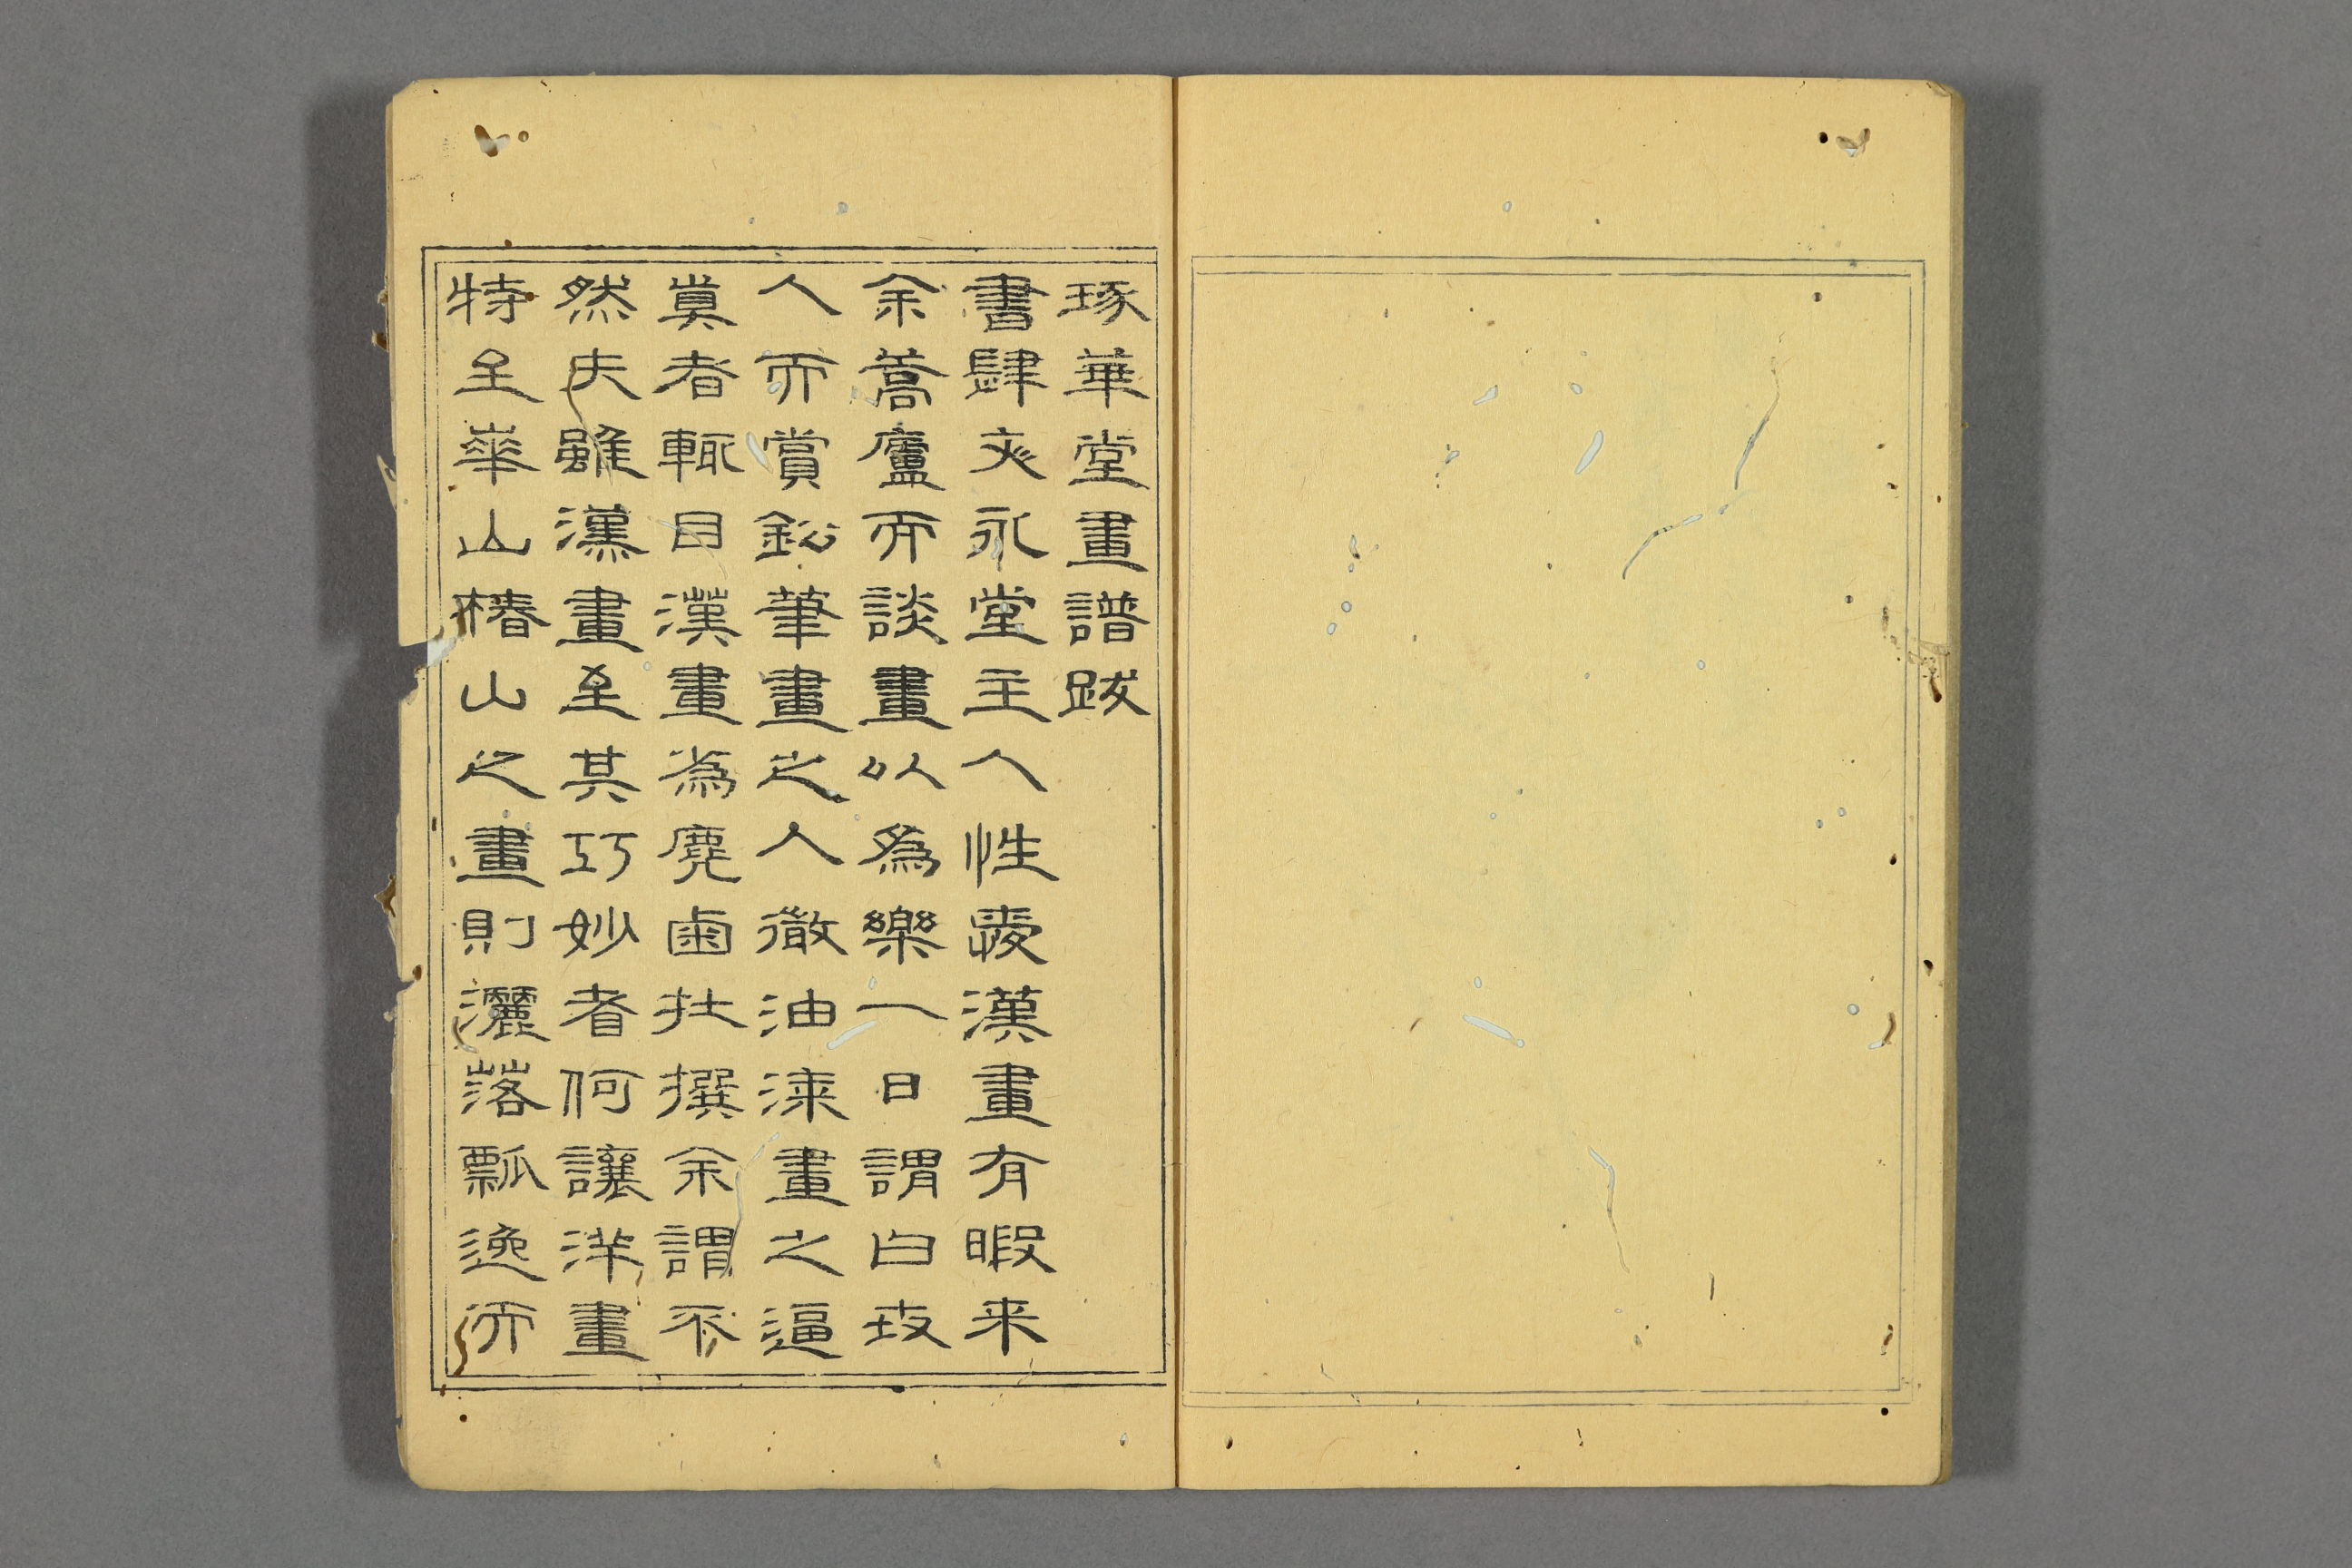 琢華堂畫譜跋
書肆文永堂主人性愛漢畫有暇来
余蒿廬而談畫以為樂一日謂曰技
人而賞鉛筆畫之人徴油漆畫之逼
眞者輙目漢畫為麁鹵杜撰余謂不
然夫雖漢畫至其巧妙者何讓洋畫
特至崋山椿山之畫則灑落瓢逸而